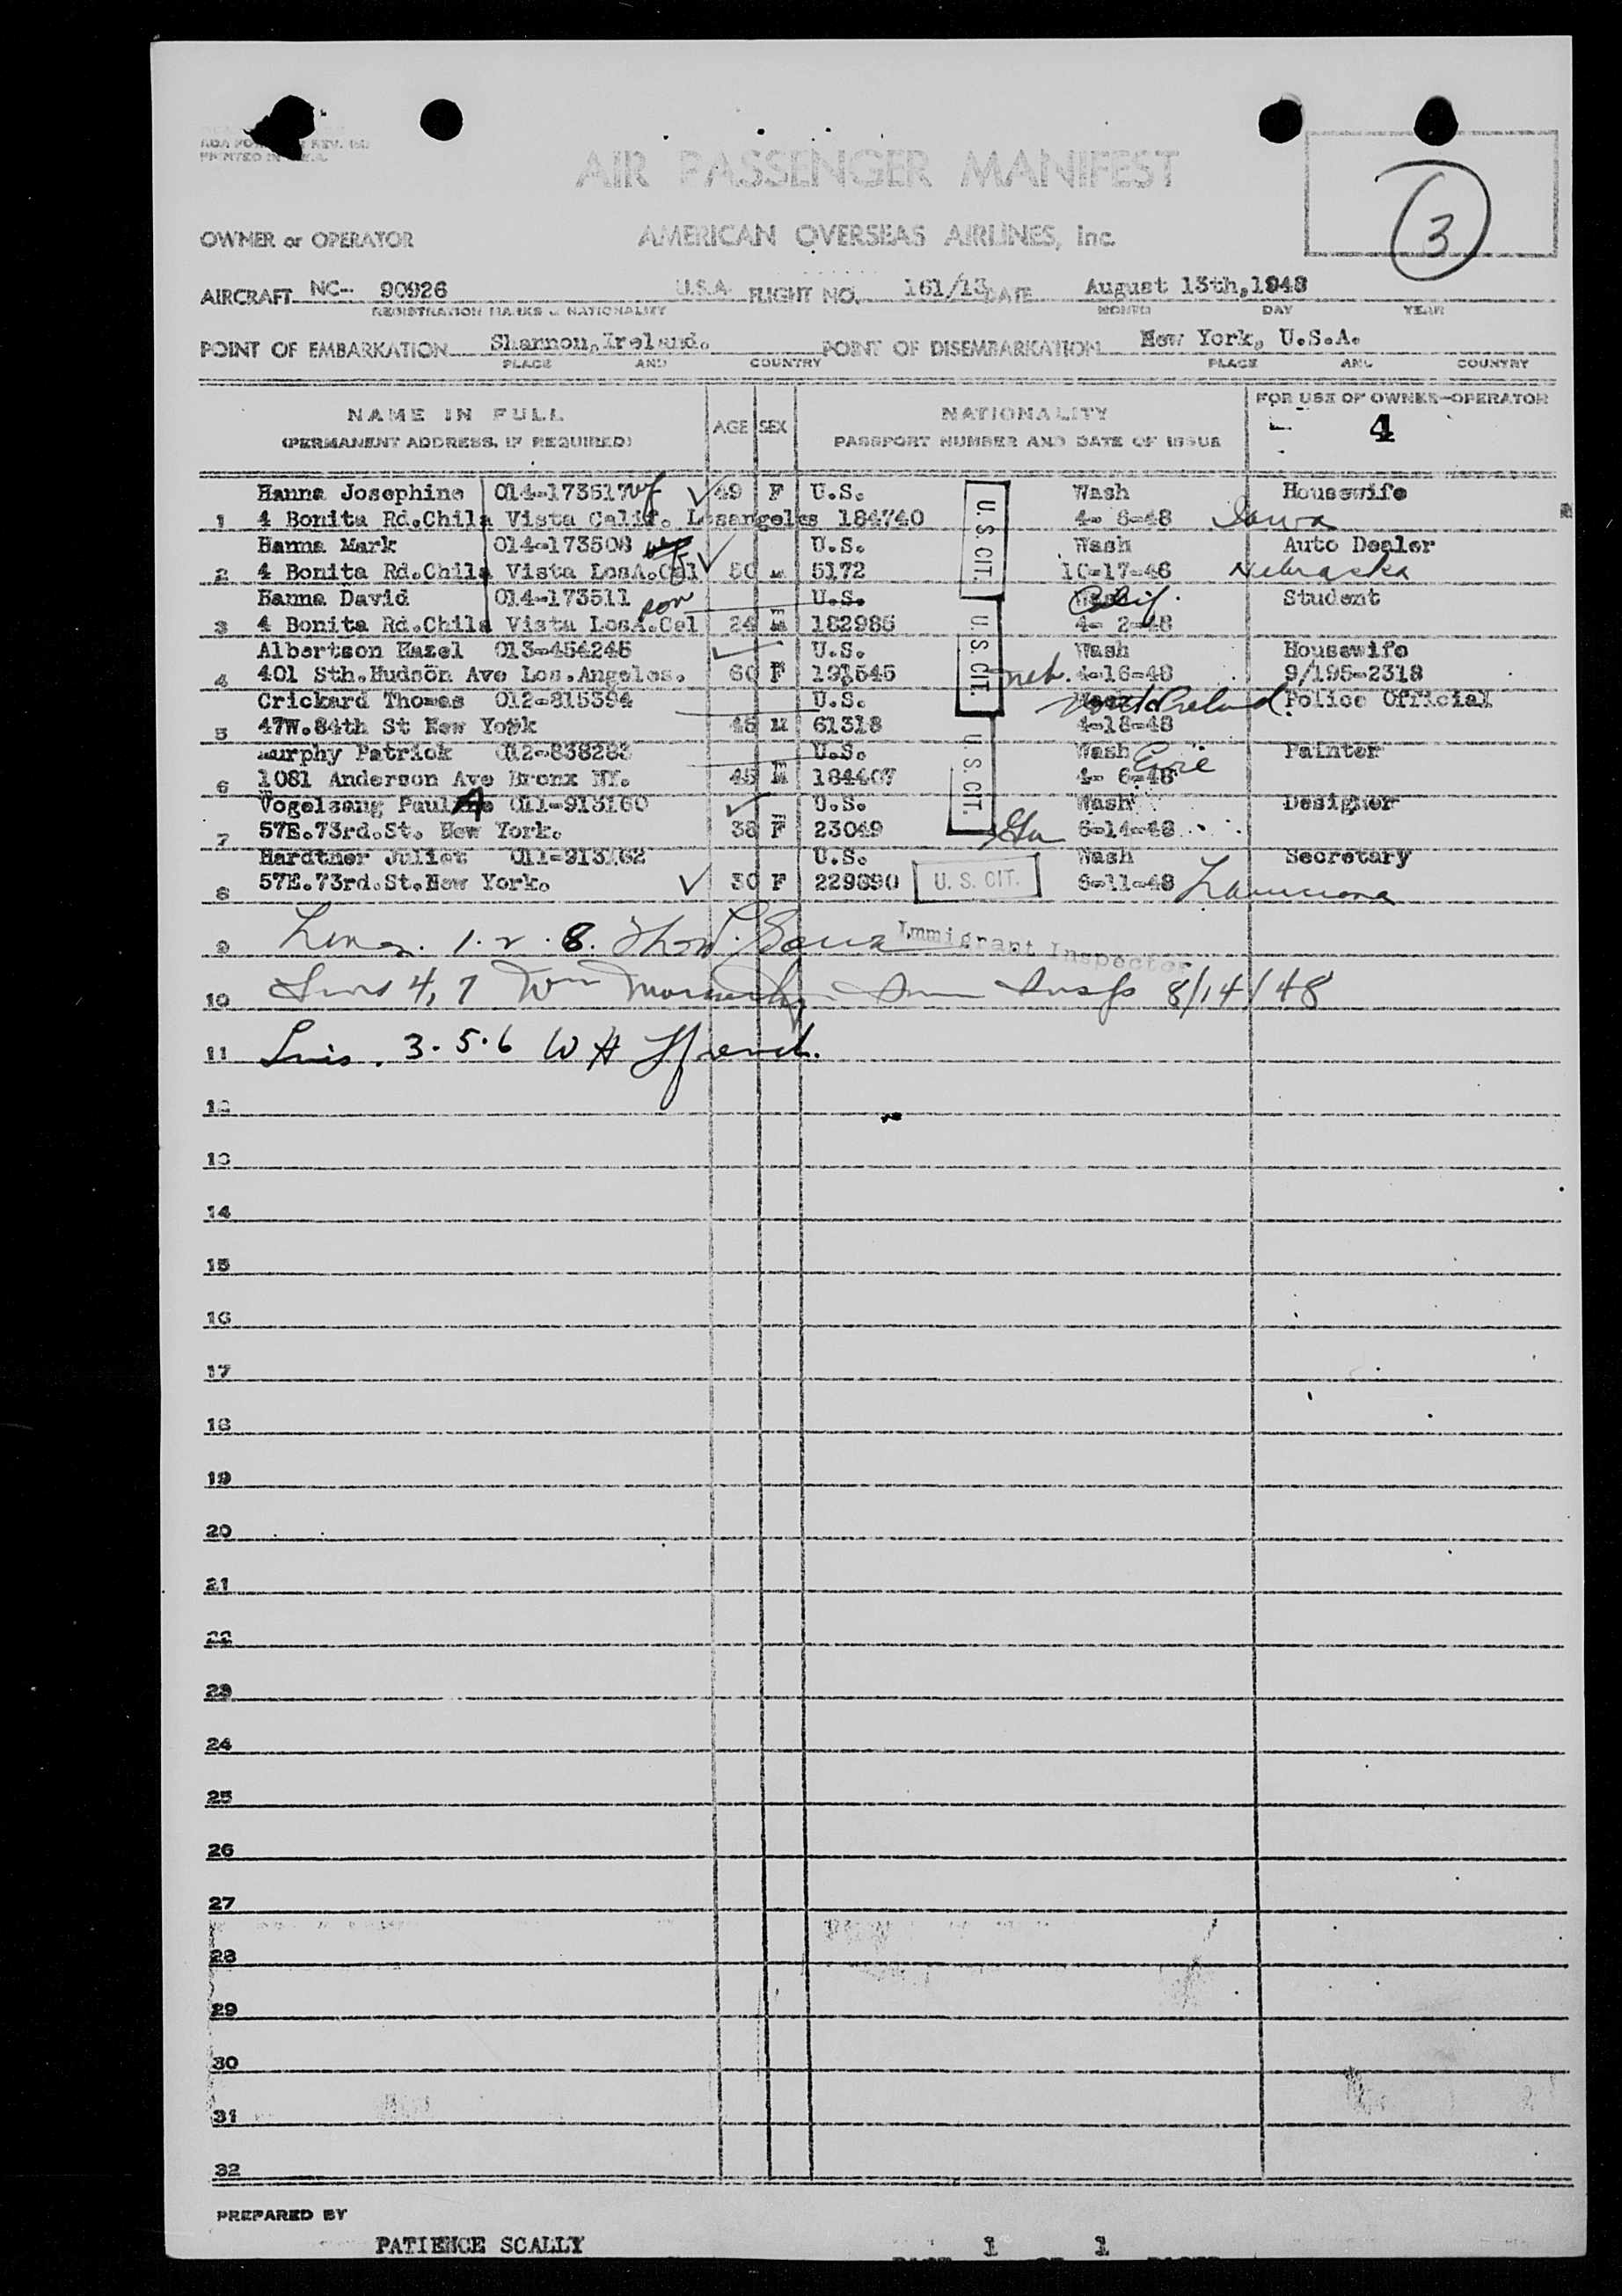 AIR PASSENGER MANIFEST
3
OWNER or OPERATOR
AMERICAN OVERSEAS AIRLINES, Inc.
AIRCRAFT NC-- 90926 U.S.A. FLIGHT NO. 161/13 DATE August 13th,1948
REGISTRATION MARKS & NATIONALITY MONTH DAY YEAR
POINT OF EMBARKATION Shannon,Ireland. POINT OF DISEMBARKATION New York, U.S.A.
PLACE AND COUNTRY PLACE AND COUNTRY
NAME IN FULL AGE SEX NATIONALITY FOR USE OF OWNER-OPERATOR
(PERMANENT ADDRESS, IF REQUIRED) PASSPORT NUMBER AND DATE OF ISSUE 4
Hanna Josephine 014-173517 wf 49 F U.S. Wash Housewife
1 4 Bonita Rd.Chila Vista Calif. Losangeles 184740 4- 6-48 Iowa
Hanna Mark 014-173508 U.S. Wash Auto Dealer
2 4 Bonita Rd.Chila Vista LosA.Cal 50 M 5172 10-17-46 Nebraska
Hanna David 014-173511 son U.S. Calif. Student
3 4 Bonita Rd.Chila Vista LosA.Cal 24 M 182985 4- 2-48
Albertson Hazel 013-454245 U.S. Wash Housewife
4 401 Sth.Hudson Ave Los.Angeles. 60 F 191545 Neb. 4-16-48 9/195-2318
Crickard Thomas 012-815394 U.S. Ireland. Police Official
5 47W.84th St New York 48 M 61318 4-18-48
Murphy Patrick 012-838283 U.S. Wash Eire Painter
6 1081 Anderson Ave Bronx NY. 45 M 184407 4- 6-48
Vogelsang Paul A 011-913160 U.S. Wash Designer
7 57E.73rd.St. New York. 38 F 23049 Ga 6-14-48
Hardtner Juliet 011-913162 U.S. Wash Secretary
8 57E.73rd.St.New York. 30 F 229890 U. S. CIT. 6-11-48 Louisiana
U. S. CIT.
U. S. CIT.
U. S. CIT.
9 Lines 1. 2. 8. Immigrant Inspector
10 Lines 4, 7 Wm Imm Insp 8/14/48
11 Lines. 3.5.6 W H French.
12
13
14
15
16
17
18
19
20
21
22
23
24
25
26
27
28
29
30
31
32
PREPARED BY
PATIENCE SCALLY 1 1